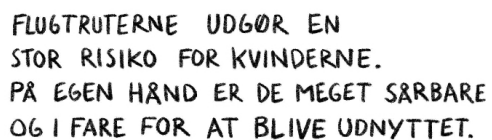 FLUGTRUTERNE UDGØR EN
STOR RISIKO FOR KVINDERNE.
PÅ EGEN HÅND ER DE MEGET SÅRBARE
OG I FARE FOR AT BLIVE UDNYTTET.